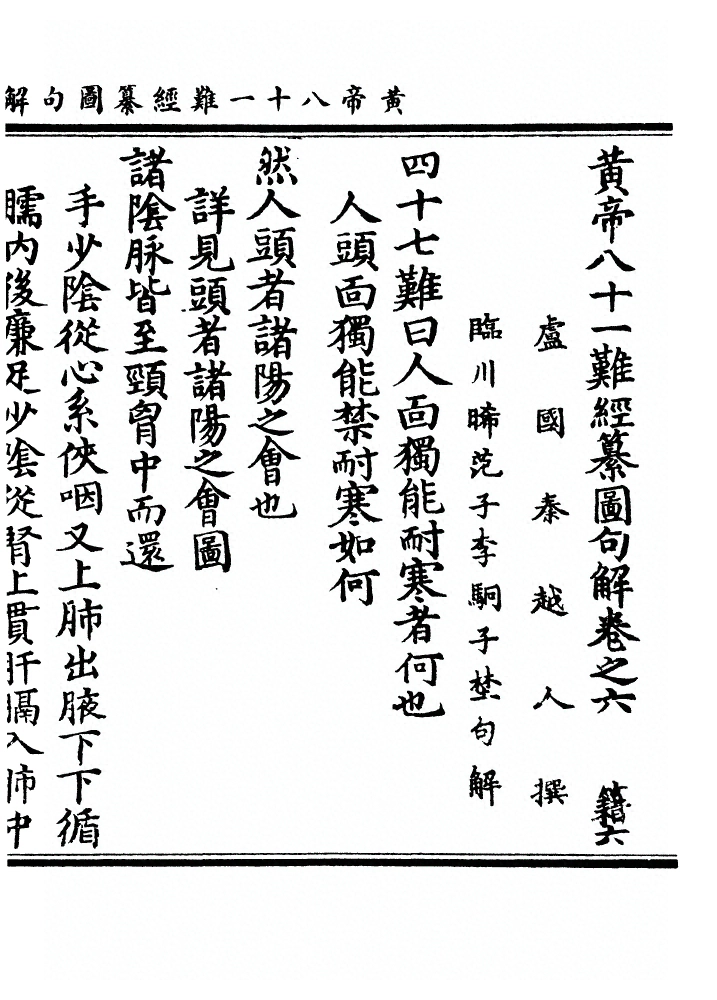 黃帝八十一難經纂圖句解
黃帝八十一難經纂圖句解卷之六 籍六
盧國秦越人撰
臨川晞范子李駉子埜句解
四十七難曰人面獨能耐寒者何也
人頭面獨能禁耐寒如何
然人頭者諸陽之會也
詳見頭者諸陽之會圖
諸陰脉皆至頸胷中而還
手少陰從心系俠咽又上肺出腋下下循
臑內後廉足少陰從腎上貫肝膈入肺中